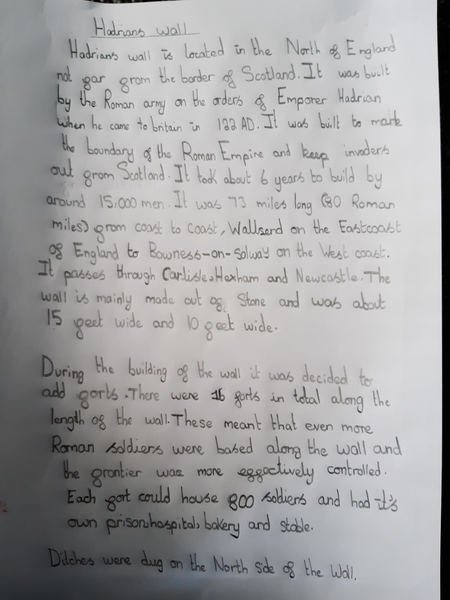 Hadrians wall
Hadrians wall is located in the North of England
not far from the border of Scotland. It was built
by the Roman army on the orders of Emporer Hadrian
when he came to britain in 122 AD. It was built to mark
the boundary of the Roman Empire and keep invaders
out from Scotland. It took about 6 years to build by
around 15,000 men. It was 73 miles long (80 Roman
miles) from coast to coast, Wallsend on the Eastcoast
of England to Bowness-on-solway on the West coast.
It passes through Carlisle, Hexham and Newcastle. The
wall is mainly made out of Stone and was about
15 feet wide and 10 feet wide.
During the building of the wall it was decided to
add forts. There were 16 forts in total along the
length of the wall. These meant that even more
Roman soldiers were based along the wall and
the frontier was more effectively controlled.
Each fort could house 800 soldiers and had it's
own prison, hospital, bakery and stable.
Ditches were dug on the North side of the Wall.